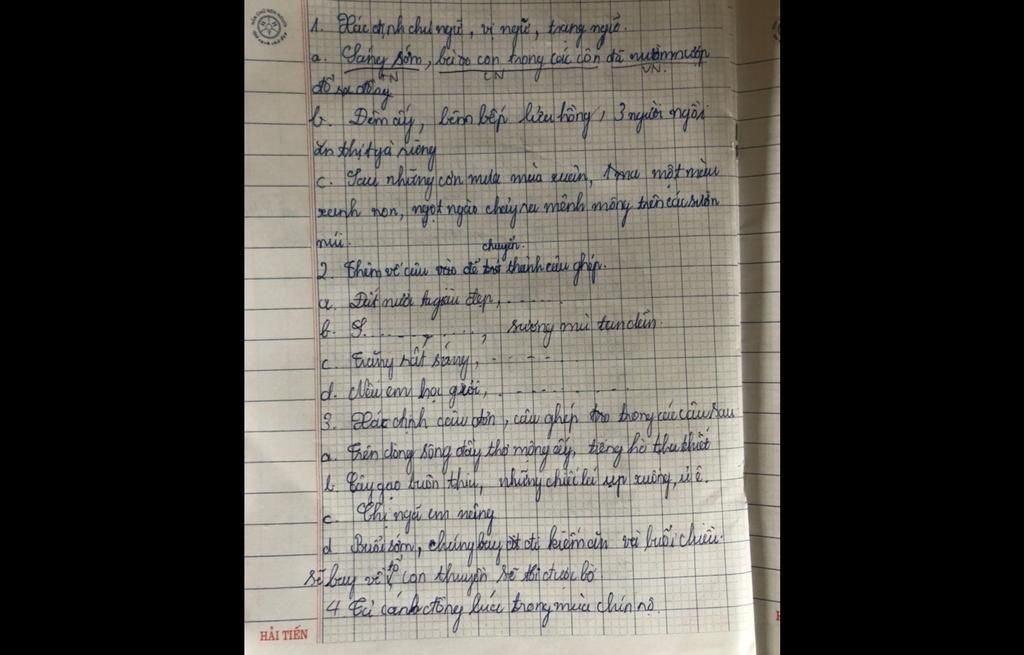 1. Xác định chủ ngữ, vị ngữ, trạng ngữ.
a. Sáng sớm, bà con trong các côn đã nườm nượp
TN CN VN.
đổ ra đồng
b. Đêm ấy, bên bếp lửa hồng, 3 người ngồi
ăn thịt gà rừng
c. Sau những cơn mưa mùa xuân, một màu
xanh non, ngọt ngào chảy ra mênh mông trên các sườn
núi.
chuyển.
2. Thêm vế câu vào để thành câu ghép.
a. Đất nước ta giàu đẹp, .......
b. ......., sương mù tan dần.
c. Trăng rất sáng, .......
d. Nếu em học giỏi, .......
3. Xác định câu đơn, câu ghép trong các câu sau
a. Trên dòng sông đầy thơ mộng ấy, tiếng hò tha thiết
b. Cây gạo buồn thiu, những chiếc lá cụp xuống, ủ ê.
c. Chị ngã em nâng
d Buổi sớm, chúng bay đi kiếm ăn và buổi chiều
sẽ bay về tổ, con thuyền sẽ tới được bờ
4. Tả cánh đồng lúa trong mùa chín rộ.
HẢI TIẾN